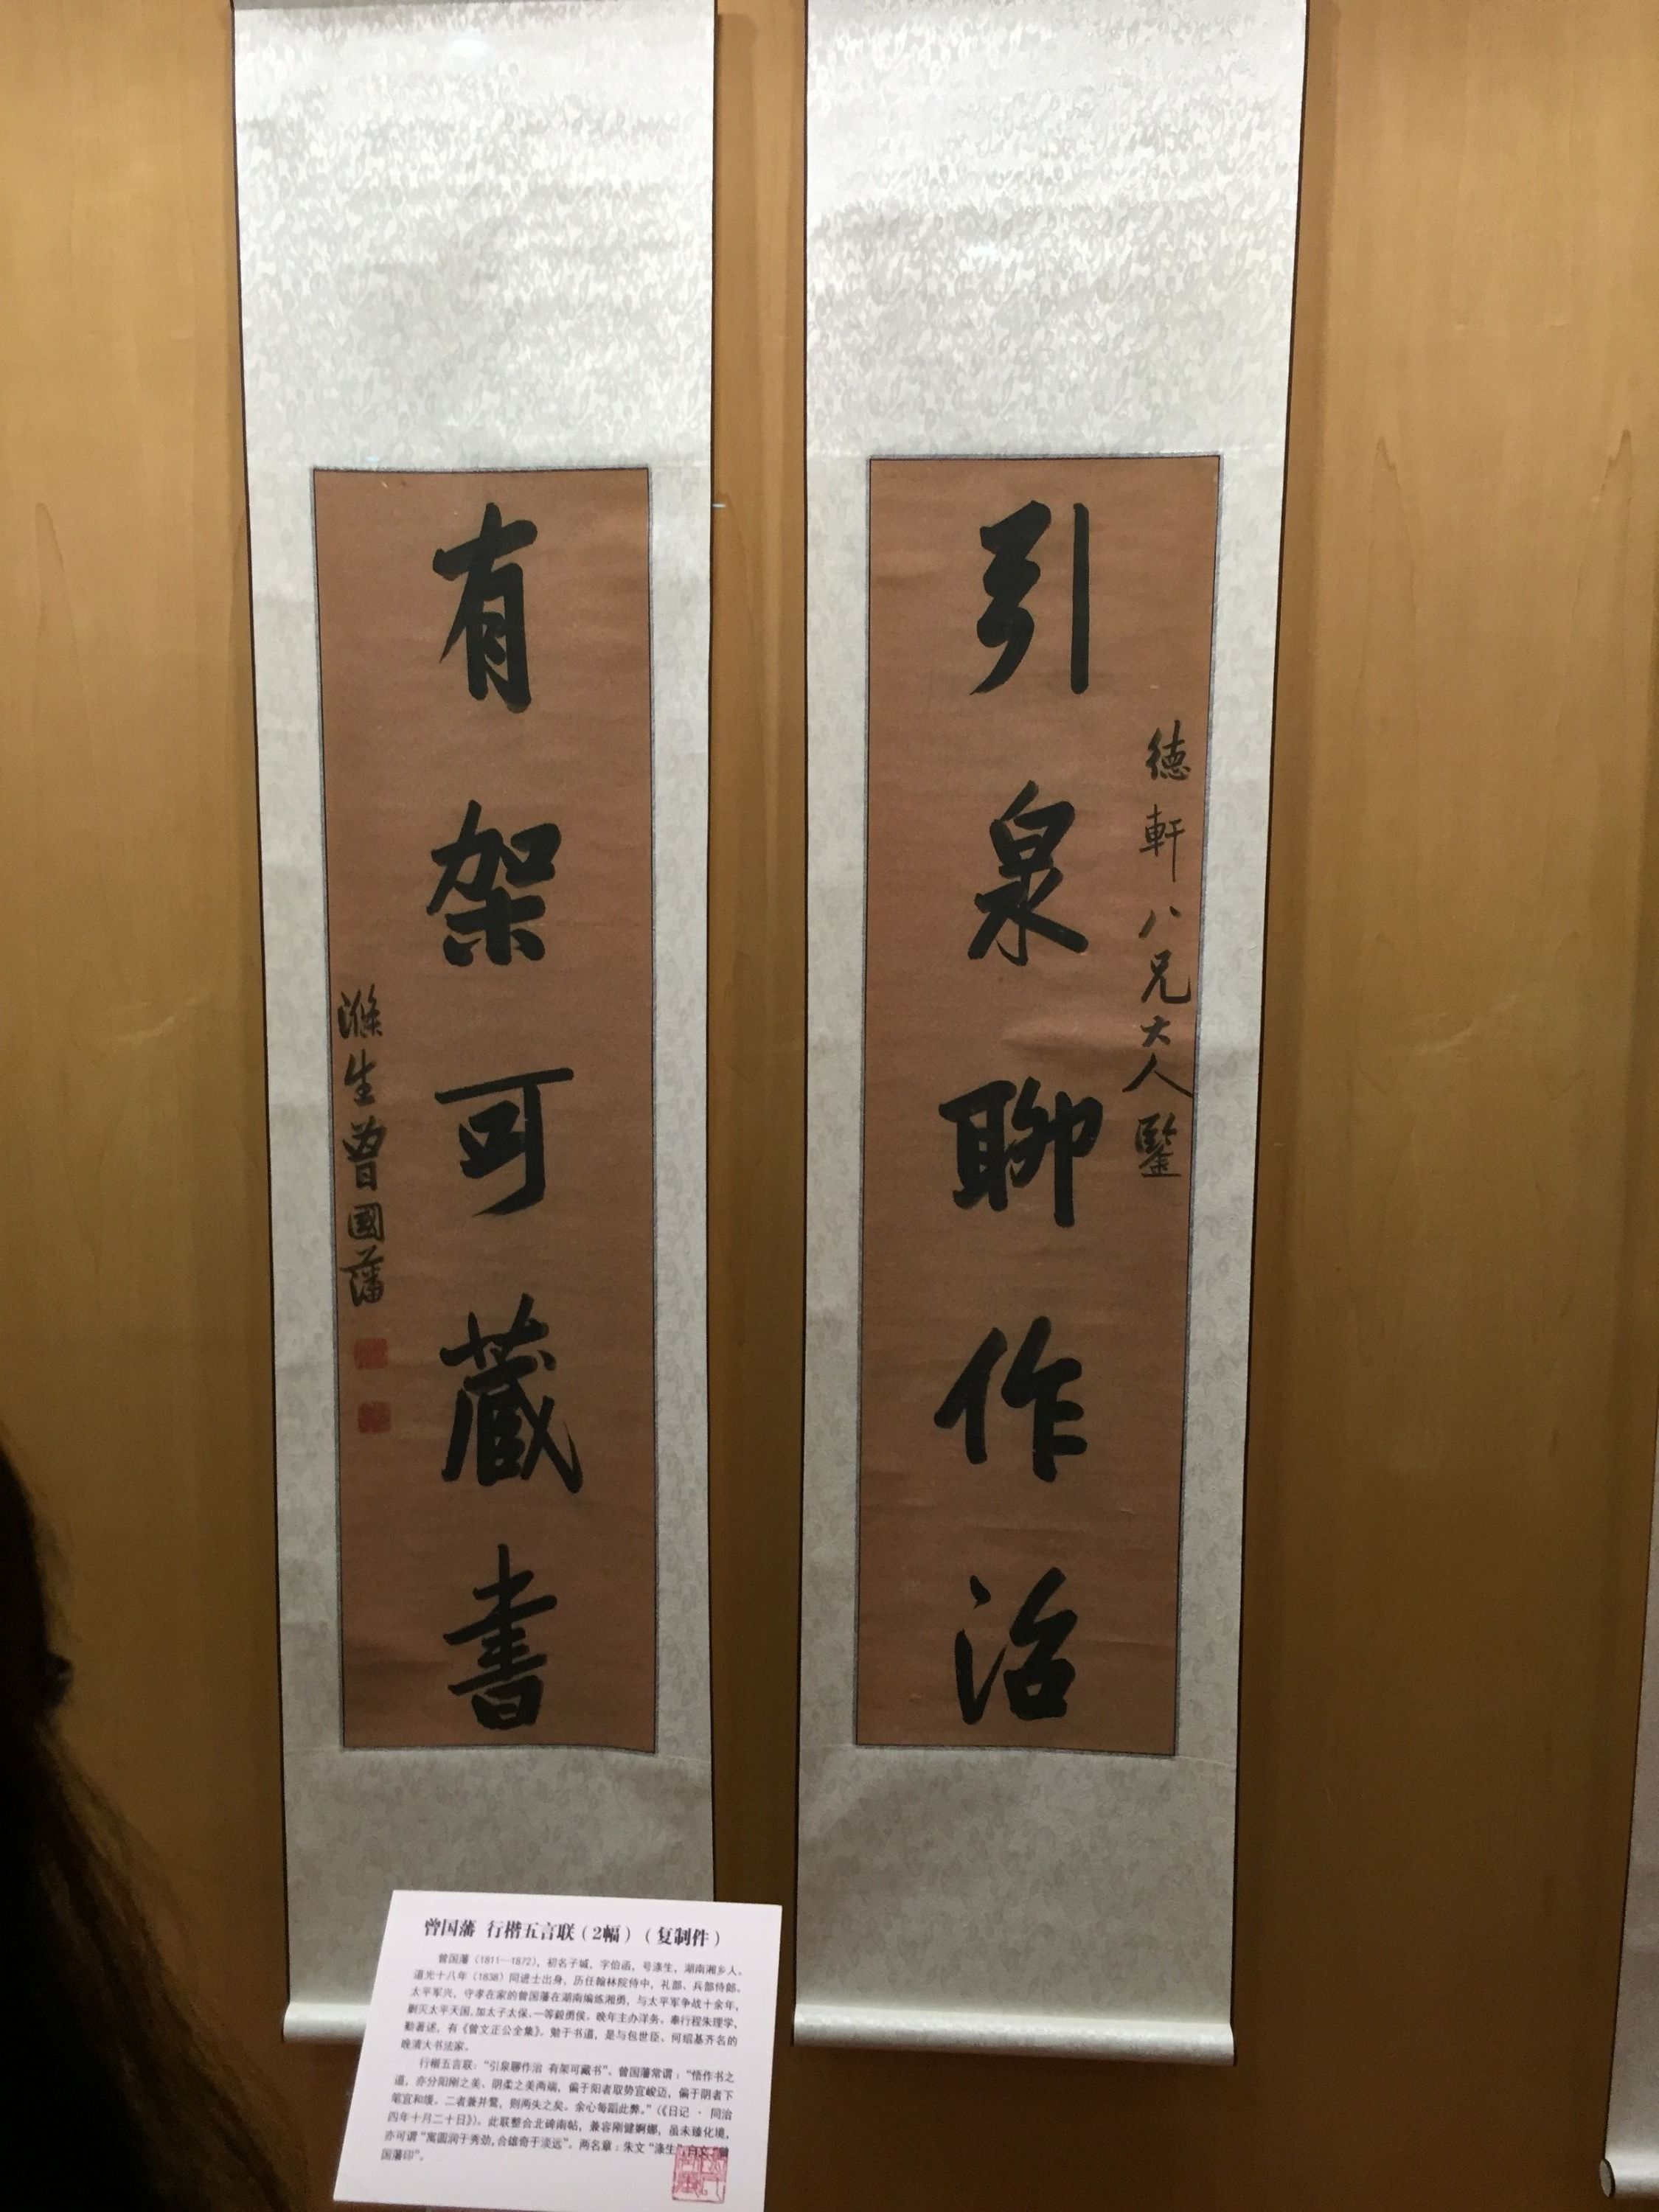 引泉聊作治
德軒八兄大人鑒
有架可藏書
滌生曾國藩
曾国藩 行楷五言联（2幅）（复制件）
曾国藩（1811—1872），初名子城，字伯函，号涤生，湖南湘乡人。
道光十八年（1838）同进士出身，历任翰林院侍中，礼部、兵部侍郎。
太平军兴，守孝在家的曾国藩在湖南编练湘勇，与太平军争战十余年，
剿灭太平天国，加太子太保、一等毅勇侯。晚年主办洋务，奉行程朱理学，
勤著述，有《曾文正公全集》。勉于书道，是与包世臣、何绍基齐名的
晚清大书法家。
行楷五言联：“引泉聊作治 有架可藏书”。曾国藩常谓：“悟作书之
道，亦分阳刚之美、阴柔之美两端，偏于阳者取势宜峻迈，偏于阴者下
笔宜和缓。二者兼并骛，则两失之矣。余心每蹈此弊。”（《日记 · 同治
四年十月二十日》）。此联整合北碑南帖，兼容刚健婀娜，虽未臻化境，
亦可谓“寓圆润于秀劲，合雄奇于淡远”。两名章：朱文“涤生”，白文“曾
国藩印”。